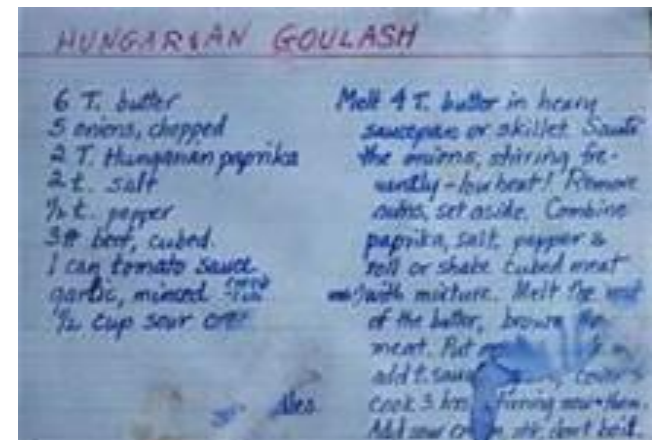 HUNGARIAN GOULASH
6 T. butter
5 onions, chopped
2 T. Hungarian paprika
2 t. salt
1/2 t. pepper
3# beef, cubed.
1 can tomato sauce
garlic, minced
1/2 cup sour
Melt 4 T. butter in heavy
saucepan or skillet. Sauté
the onions, stirring fre-
quently - low heat! Remove
set aside. Combine
paprika, salt, pepper &
roll or shake cubed meat
with mixture. Melt the rest
of the butter, brown the
meat. Put
add t. sauce cover
cook 3 hrs. stirring now + then.
Add sour don't boil.